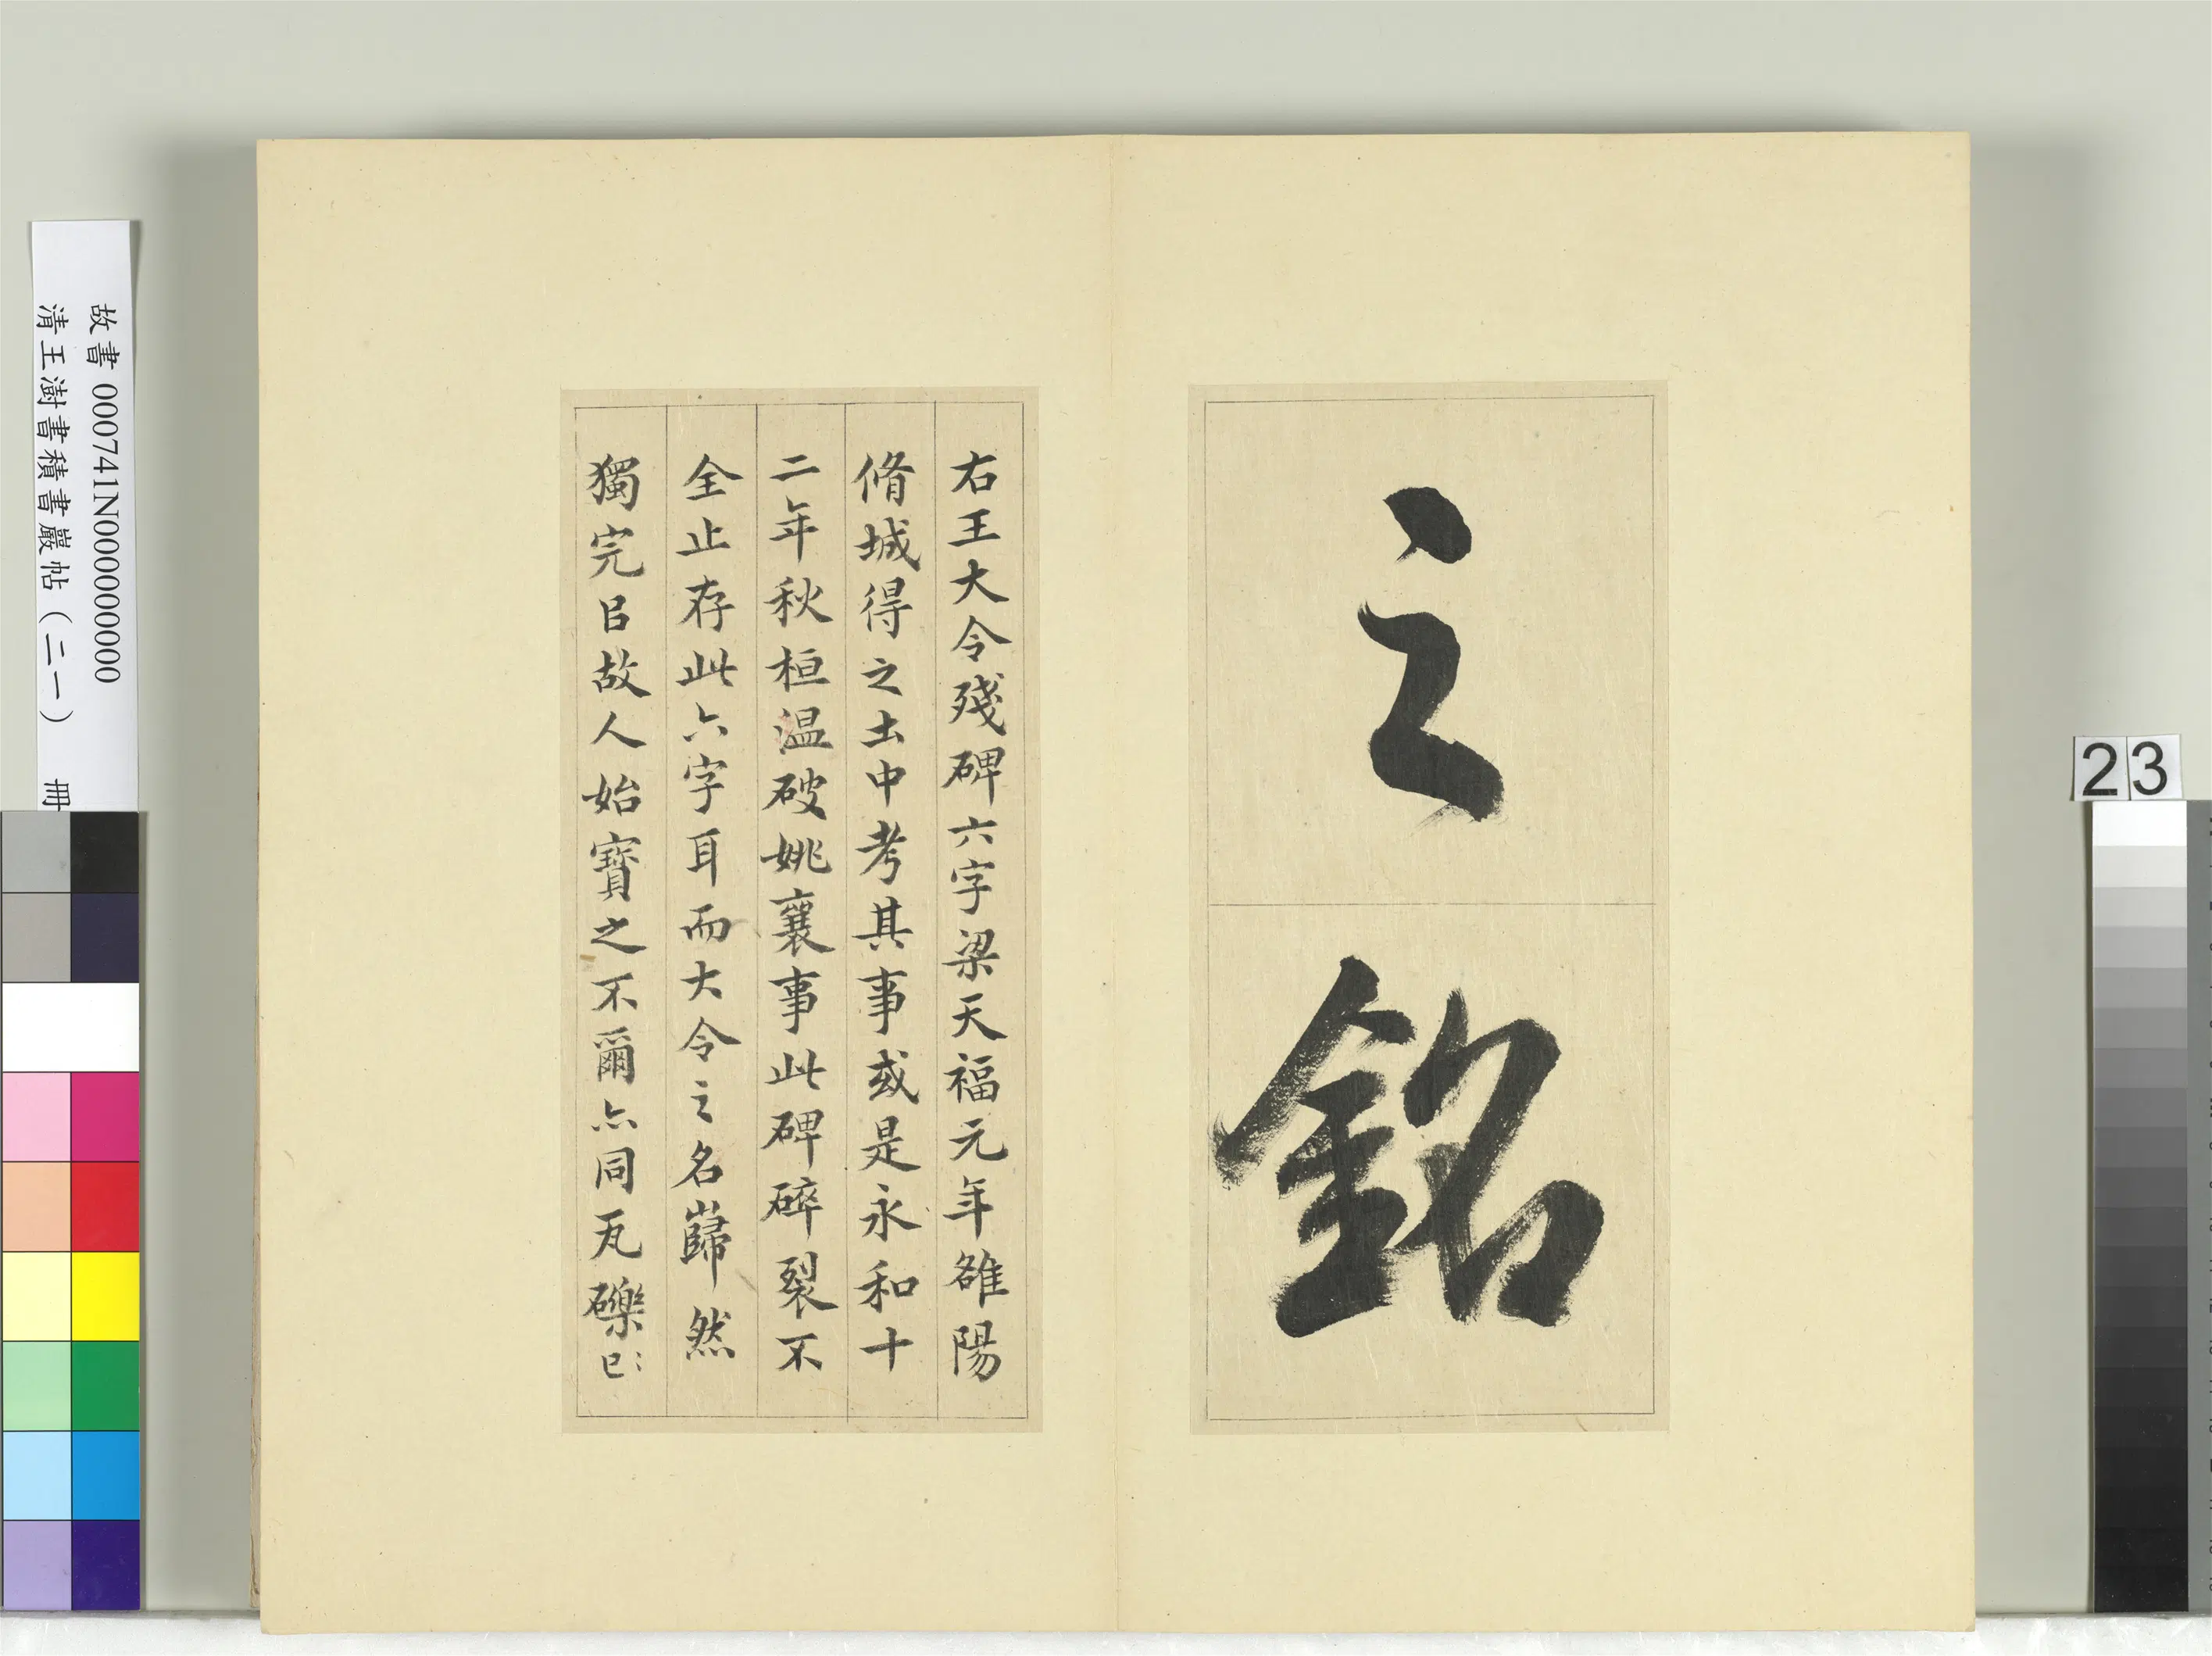 之銘
右王大令殘碑六字梁天福元年雒陽
脩城得之土中考其事或是永和十
二年秋桓温破姚襄事此碑碎裂不
全止存此六字耳而大令之名巋然
獨完㠯故人始寶之不爾亦同瓦礫已
故書 000741N000000000
清王澍書積書巖帖（二一） 冊
23